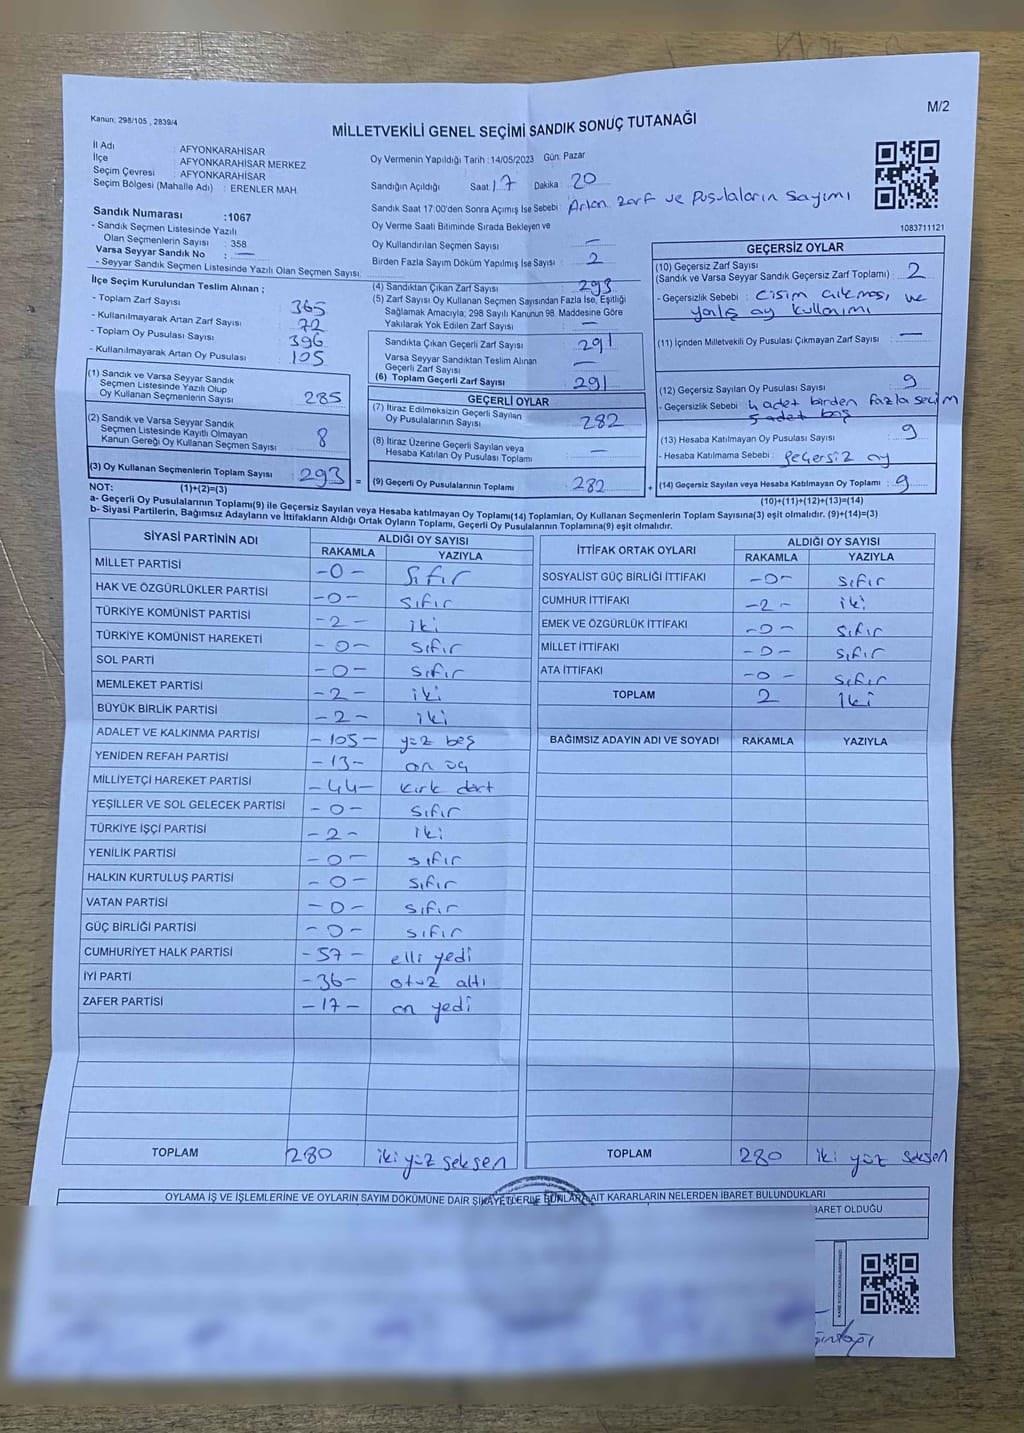 M/2
Kanun: 298/105 , 2839/4
MİLLETVEKİLİ GENEL SEÇİMİ SANDIK SONUÇ TUTANAĞI
İl Adı : AFYONKARAHİSAR
İlçe : AFYONKARAHİSAR MERKEZ
Seçim Çevresi : AFYONKARAHİSAR
Seçim Bölgesi (Mahalle Adı) : ERENLER MAH.
Sandık Numarası :1067
- Sandık Seçmen Listesinde Yazılı
Olan Seçmenlerin Sayısı : 358
Varsa Seyyar Sandık No : —
- Seyyar Sandık Seçmen Listesinde Yazılı Olan Seçmen Sayısı:
Oy Vermenin Yapıldığı Tarih :14/05/2023 Gün: Pazar
Sandığın Açıldığı Saat 17 Dakika : 20
Sandık Saat 17:00'den Sonra Açımış İse Sebebi : Artan zarf ve Pusulaların sayımı
Oy Verme Saati Bitiminde Sırada Bekleyen ve
Oy Kullandırılan Seçmen Sayısı : —
Birden Fazla Sayım Döküm Yapılmış İse Sayısı : 2
1083711121
İlçe Seçim Kurulundan Teslim Alınan ;
- Toplam Zarf Sayısı : 365
- Kullanılmayarak Artan Zarf Sayısı : 72
- Toplam Oy Pusulası Sayısı : 396
- Kullanılmayarak Artan Oy Pusulası : 105
(1) Sandık ve Varsa Seyyar Sandık
Seçmen Listesinde Yazılı Olup
Oy Kullanan Seçmenlerin Sayısı : 285
(2) Sandık ve Varsa Seyyar Sandık
Seçmen Listesinde Kayıtlı Olmayan
Kanun Gereği Oy Kullanan Seçmen Sayısı : 8
(3) Oy Kullanan Seçmenlerin Toplam Sayısı : 293
(4) Sandıktan Çıkan Zarf Sayısı : 293
(5) Zarf Sayısı Oy Kullanan Seçmen Sayısından Fazla İse, Eşitliği
Sağlamak Amacıyla; 298 Sayılı Kanunun 98. Maddesine Göre
Yakılarak Yok Edilen Zarf Sayısı : —
Sandıkta Çıkan Geçerli Zarf Sayısı : 291
Varsa Seyyar Sandıktan Teslim Alınan
Geçerli Zarf Sayısı : —
(6) Toplam Geçerli Zarf Sayısı : 291
GEÇERLİ OYLAR
(7) İtiraz Edilmeksizin Geçerli Sayılan
Oy Pusulalarının Sayısı : 282
(8) İtiraz Üzerine Geçerli Sayılan veya
Hesaba Katılan Oy Pusulası Toplamı : —
= (9) Geçerli Oy Pusulalarının Toplamı : 282 +
GEÇERSİZ OYLAR
(10) Geçersiz Zarf Sayısı
(Sandık ve Varsa Seyyar Sandık Geçersiz Zarf Toplamı) : 2
- Geçersizlik Sebebi : Cisim çıkması, ve
yanlış oy kullanımı
(11) İçinden Milletvekili Oy Pusulası Çıkmayan Zarf Sayısı : —
(12) Geçersiz Sayılan Oy Pusulası Sayısı : 9
- Geçersizlik Sebebi : 4 adet birden fazla seçim
5 adet boş
(13) Hesaba Katılmayan Oy Pusulası Sayısı : 9
- Hesaba Katılmama Sebebi : geçersiz oy
(14) Geçersiz Sayılan veya Hesaba Katılmayan Oy Pusulası Toplamı : 9
NOT: (1)+(2)=(3)
(10)+(11)+(12)+(13)=(14)
a- Geçerli Oy Pusulalarının Toplamı(9) ile Geçersiz Sayılan veya Hesaba katılmayan Oy Toplamı(14) Toplamları, Oy Kullanan Seçmenlerin Toplam Sayısına(3) eşit olmalıdır. (9)+(14)=(3)
b- Siyasi Partilerin, Bağımsız Adayların ve İttifakların Aldığı Ortak Oyların Toplamı, Geçerli Oy Pusulalarının Toplamına(9) eşit olmalıdır.
SİYASİ PARTİNİN ADI ALDIĞI OY SAYISI
RAKAMLA YAZIYLA
MİLLET PARTİSİ -0- Sıfır
HAK VE ÖZGÜRLÜKLER PARTİSİ -0- sıfır
TÜRKİYE KOMÜNİST PARTİSİ -2- iki
TÜRKİYE KOMÜNİST HAREKETİ -0- sıfır
SOL PARTİ -0- sıfır
MEMLEKET PARTİSİ -2- iki
BÜYÜK BİRLİK PARTİSİ -2- iki
ADALET VE KALKINMA PARTİSİ -105- yüz beş
YENİDEN REFAH PARTİSİ -13- on üç
MİLLİYETÇİ HAREKET PARTİSİ -44- kırk dört
YEŞİLLER VE SOL GELECEK PARTİSİ -0- sıfır
TÜRKİYE İŞÇİ PARTİSİ -2- iki
YENİLİK PARTİSİ -0- sıfır
HALKIN KURTULUŞ PARTİSİ -0- sıfır
VATAN PARTİSİ -0- sıfır
GÜÇ BİRLİĞİ PARTİSİ -0- sıfır
CUMHURİYET HALK PARTİSİ -57- elli yedi
İYİ PARTİ -36- otuz altı
ZAFER PARTİSİ -17- on yedi
TOPLAM 280 iki yüz seksen
İTTİFAK ORTAK OYLARI ALDIĞI OY SAYISI
RAKAMLA YAZIYLA
SOSYALİST GÜÇ BİRLİĞİ İTTİFAKI -0- sıfır
CUMHUR İTTİFAKI -2- iki
EMEK VE ÖZGÜRLÜK İTTİFAKI -0- sıfır
MİLLET İTTİFAKI -0- sıfır
ATA İTTİFAKI -0- sıfır
TOPLAM 2 iki
BAĞIMSIZ ADAYIN ADI VE SOYADI RAKAMLA YAZIYLA
TOPLAM 280 iki yüz seksen
OYLAMA İŞ VE İŞLEMLERİNE VE OYLARIN SAYIM DÖKÜMÜNE DAİR ŞİKAYETLERLE BUNLARA AİT KARARLARIN NELERDEN İBARET BULUNDUKLARI
BARET OLDUĞU